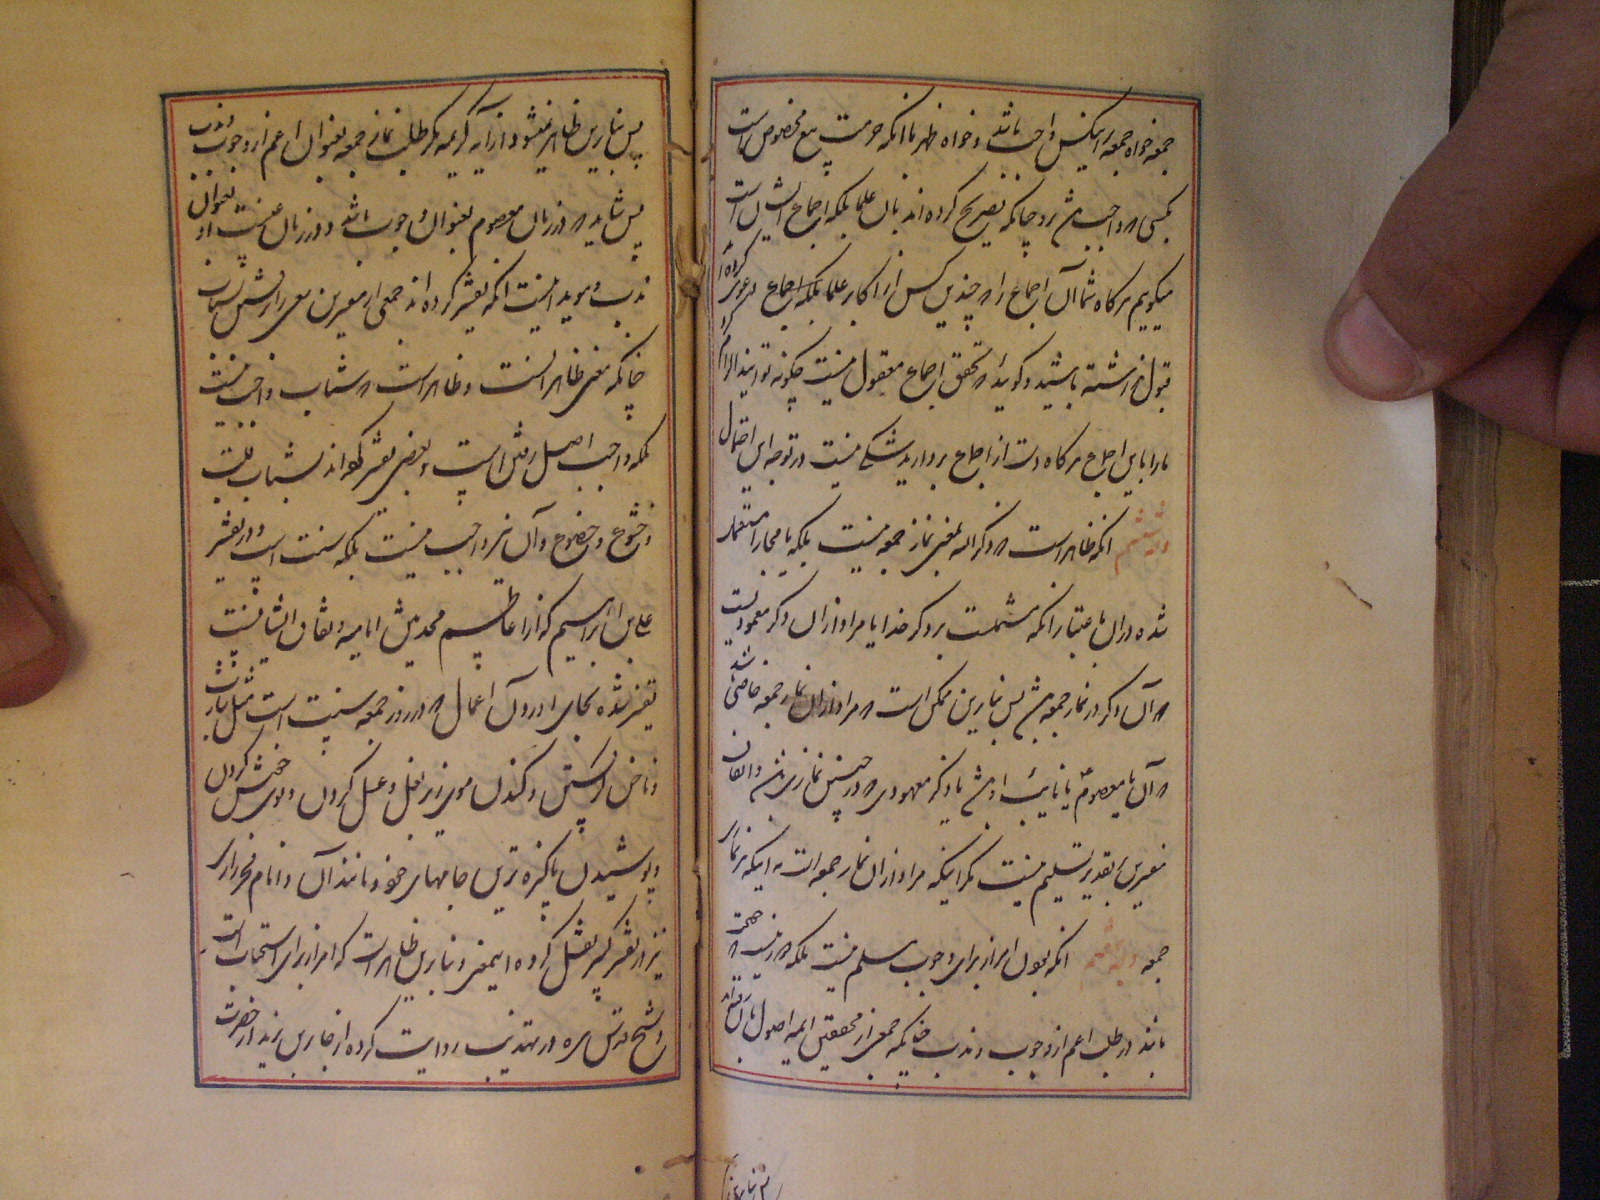 جمعه خواه جمعه براینکس واجب باشد و خواه ظهر با آنکه حرمت بیع مخصوص است
بکسی که واجب باشد برو چنانکه تصریح کرده اند بآن علما بلکه اجماع ایشان است
میگوییم هر گاه شما آن اجماع را که چندین کس از اکابر علما بلکه اجماع دعوی کرده اند
قبول نداشته باشید و گویید که تحقق اجماع معقول نیست چگونه توانید الزام کرد
ما را باین اجماع هر گاه دست از اجماع بردارید شکی نیست در توجه این احتمال
وجه ششم آنکه ظاهر است که ذکر الله بمعنی نماز جمعه نیست بلکه یا مجازا مستعمل
شده در آن باعتبار آنکه مشتملست بر ذکر خدا یا مراد از آن ذکر معهودیست
که آن ذکر در نماز جمعه باشد پس بنابرین ممکن است که مراد از آن نماز جمعه خاصی باشد
که آن با معصوم یا نایب او باشد یا ذکر معهودی که در چنین نمازی باشد و اتفاق
مفسرین بتقدیر تسلیم نیست مگر اینکه مراد از آن نماز جمعه است نه اینکه هر نماز
جمعه وجه هفتم آنکه بودن امر از برای وجوب مسلم نیست بلکه
باشد در طلب اعم از وجوب و ندب چنانکه جمعی از محققین ایمه اصول بآن رفته اند
پس بنابرین ظاهر نمیشود از آیه کریمه مگر طلب نماز جمعه بعنوان اعم از وجوب و ندب
پس شاید که در زمان معصوم بعنوان وجوب باشد و در زمان غیبت او بعنوان
ندب و موید اینست آنکه تفسیر کرده اند جمعی از مفسرین سعی را برفتن بشتاب
چنانکه معنی ظاهر آنست و ظاهر است که شتاب واجب نیست
بلکه واجب اصل رفتن است و بعضی تفسیر کرده اند بشتاب قلب
و خشوع و خضوع و آن نیز واجب نیست بلکه سنت است و در تفسیر
علی بن ابراهیم که از اعاظم محدثین امامیه و ثقات ایشانست
تفسیر شده بجای آوردن اعمال که در روز جمعه سنت است مثل شارب
و ناخن گرفتن و کندن موی زیر بغل و غسل کردن و بوی خوش کردن
و پوشیدن پاکیزه ترین جامهای خود و مانند آن و امام فخر رازی
نیز در تفسیر کبیر نقل کرده اینمعنی و بنابرین ظاهر است که امر از برای استحباب است
و شیخ قدس سره در تهذیب روایت کرده از جابر بن یزید از حضرت
پس بنابرین